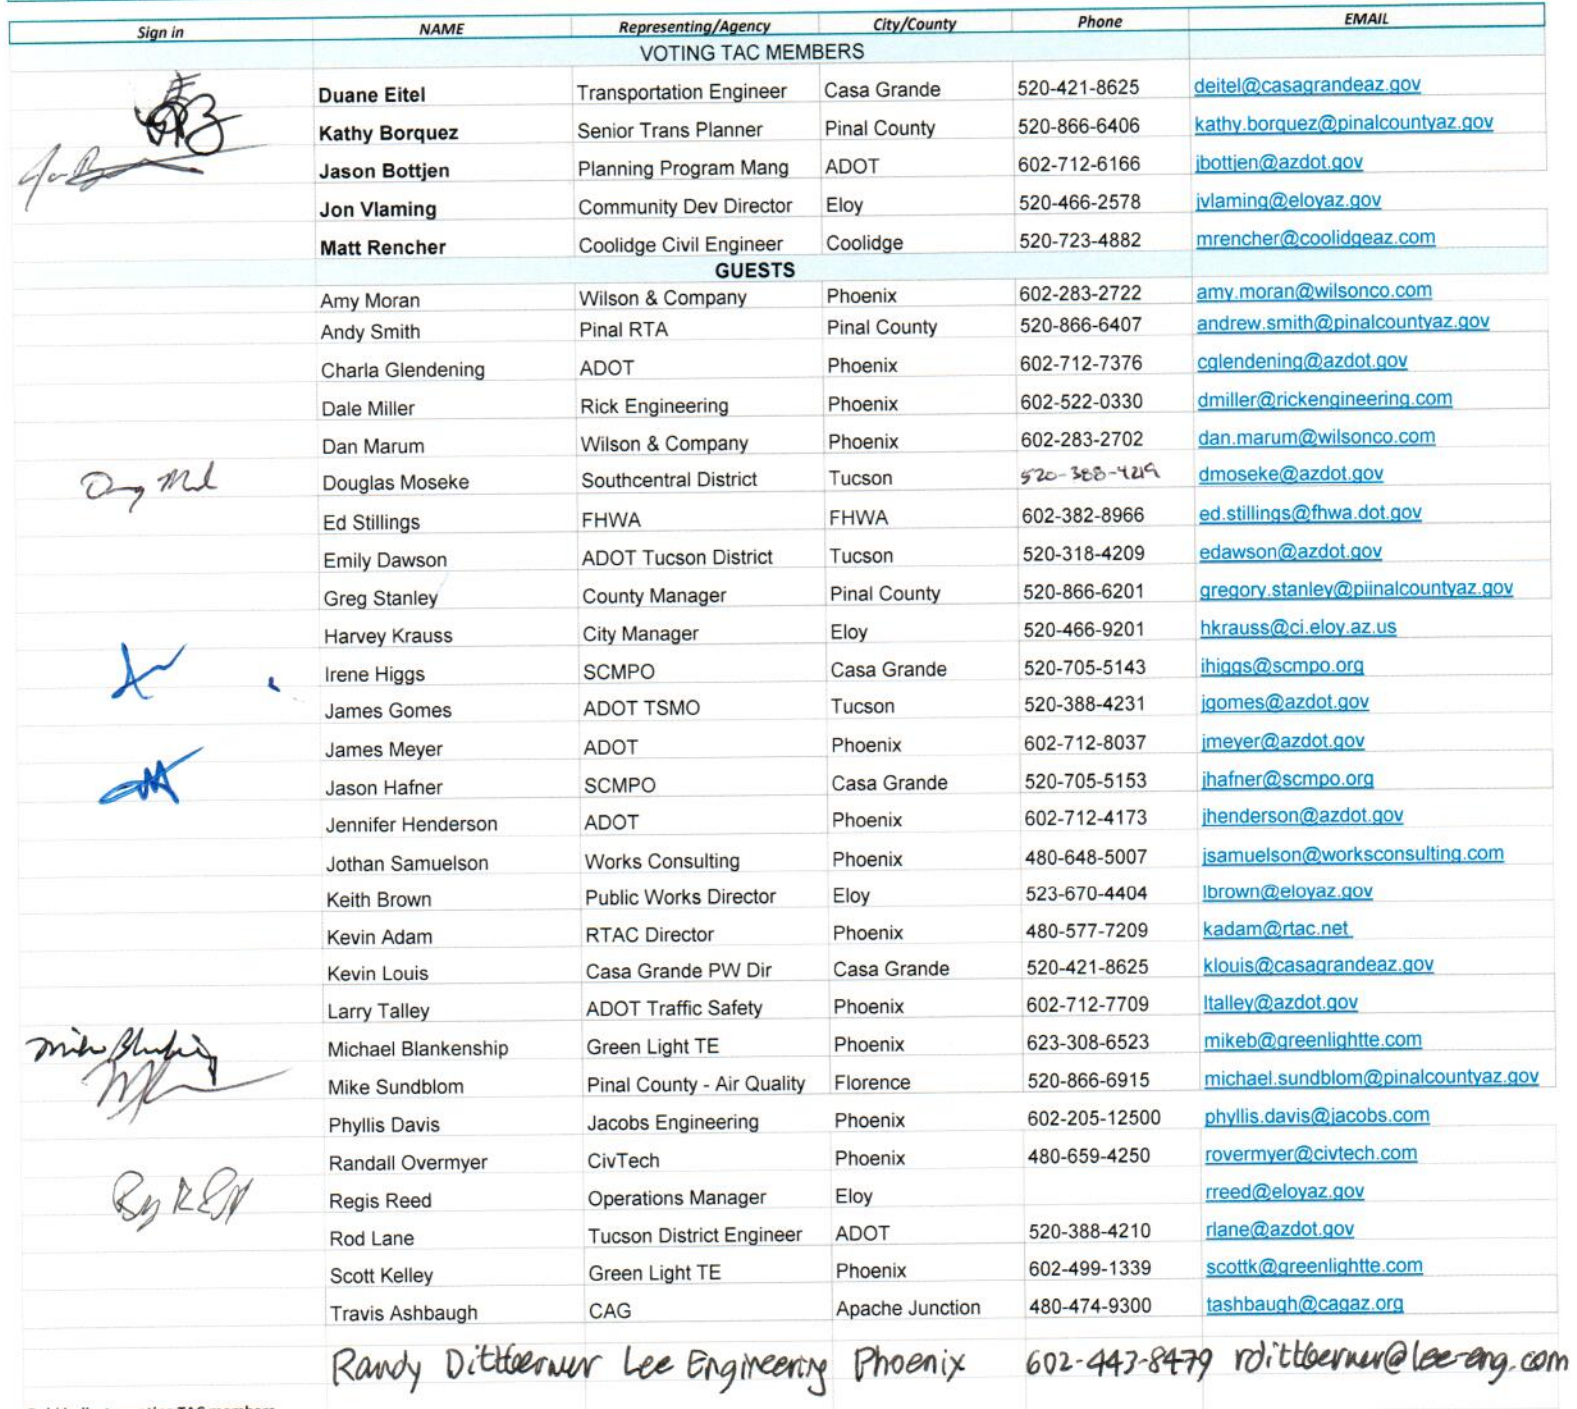 Sign in NAME Representing/Agency City/County Phone EMAIL
VOTING TAC MEMBERS
Duane Eitel Transportation Engineer Casa Grande 520-421-8625 deitel@casagrandeaz.gov
Kathy Borquez Senior Trans Planner Pinal County 520-866-6406 kathy.borquez@pinalcountyaz.gov
Jason Bottjen Planning Program Mang ADOT 602-712-6166 jbottjen@azdot.gov
Jon Vlaming Community Dev Director Eloy 520-466-2578 jvlaming@eloyaz.gov
Matt Rencher Coolidge Civil Engineer Coolidge 520-723-4882 mrencher@coolidgeaz.com
GUESTS
Amy Moran Wilson & Company Phoenix 602-283-2722 amy.moran@wilsonco.com
Andy Smith Pinal RTA Pinal County 520-866-6407 andrew.smith@pinalcountyaz.gov
Charla Glendening ADOT Phoenix 602-712-7376 cglendening@azdot.gov
Dale Miller Rick Engineering Phoenix 602-522-0330 dmiller@rickengineering.com
Dan Marum Wilson & Company Phoenix 602-283-2702 dan.marum@wilsonco.com
Douglas Moseke Southcentral District Tucson 520-388-4219 dmoseke@azdot.gov
Ed Stillings FHWA FHWA 602-382-8966 ed.stillings@fhwa.dot.gov
Emily Dawson ADOT Tucson District Tucson 520-318-4209 edawson@azdot.gov
Greg Stanley County Manager Pinal County 520-866-6201 gregory.stanley@piinalcountyaz.gov
Harvey Krauss City Manager Eloy 520-466-9201 hkrauss@ci.eloy.az.us
Irene Higgs SCMPO Casa Grande 520-705-5143 ihiggs@scmpo.org
James Gomes ADOT TSMO Tucson 520-388-4231 jgomes@azdot.gov
James Meyer ADOT Phoenix 602-712-8037 jmeyer@azdot.gov
Jason Hafner SCMPO Casa Grande 520-705-5153 jhafner@scmpo.org
Jennifer Henderson ADOT Phoenix 602-712-4173 jhenderson@azdot.gov
Jothan Samuelson Works Consulting Phoenix 480-648-5007 jsamuelson@worksconsulting.com
Keith Brown Public Works Director Eloy 523-670-4404 lbrown@eloyaz.gov
Kevin Adam RTAC Director Phoenix 480-577-7209 kadam@rtac.net
Kevin Louis Casa Grande PW Dir Casa Grande 520-421-8625 klouis@casagrandeaz.gov
Larry Talley ADOT Traffic Safety Phoenix 602-712-7709 ltalley@azdot.gov
Michael Blankenship Green Light TE Phoenix 623-308-6523 mikeb@greenlightte.com
Mike Sundblom Pinal County - Air Quality Florence 520-866-6915 michael.sundblom@pinalcountyaz.gov
Phyllis Davis Jacobs Engineering Phoenix 602-205-12500 phyllis.davis@jacobs.com
Randall Overmyer CivTech Phoenix 480-659-4250 rovermyer@civtech.com
Regis Reed Operations Manager Eloy rreed@eloyaz.gov
Rod Lane Tucson District Engineer ADOT 520-388-4210 rlane@azdot.gov
Scott Kelley Green Light TE Phoenix 602-499-1339 scottk@greenlightte.com
Travis Ashbaugh CAG Apache Junction 480-474-9300 tashbaugh@cagaz.org
Randy Dittberner Lee Engineering Phoenix 602-443-8479 rdittberner@lee-eng.com